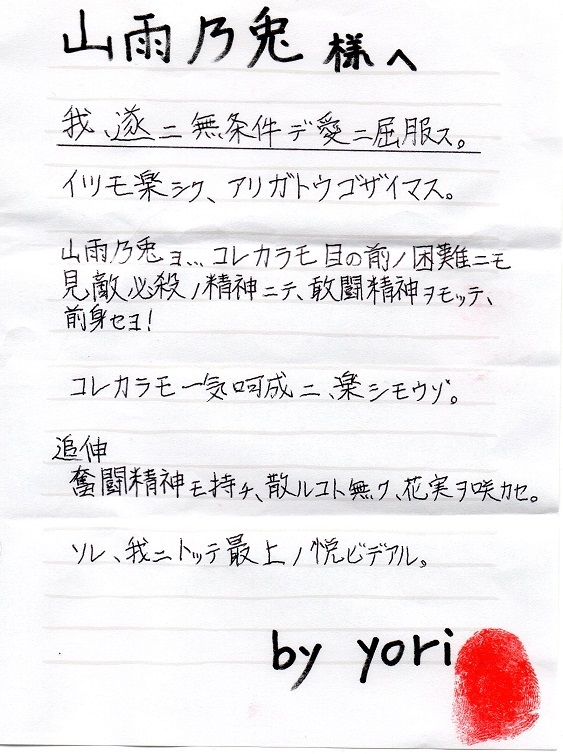 山雨乃兎 様へ
我、遂ニ無条件デ愛ニ屈服ス。
イツモ楽シク、アリガトウゴザイマス。
山雨乃兎ヨ、、コレカラモ目の前ノ困難ニモ
見敵必殺ノ精神ニテ、敢闘精神ヲモッテ、
前身セヨ!
コレカラモ一気呵成ニ、楽シモウゾ。
追伸
奮闘精神モ持チ、散ルコト無ク、花実ヲ咲カセ。
ソレ、我ニトッテ最上ノ悦ビデアル。
by yori